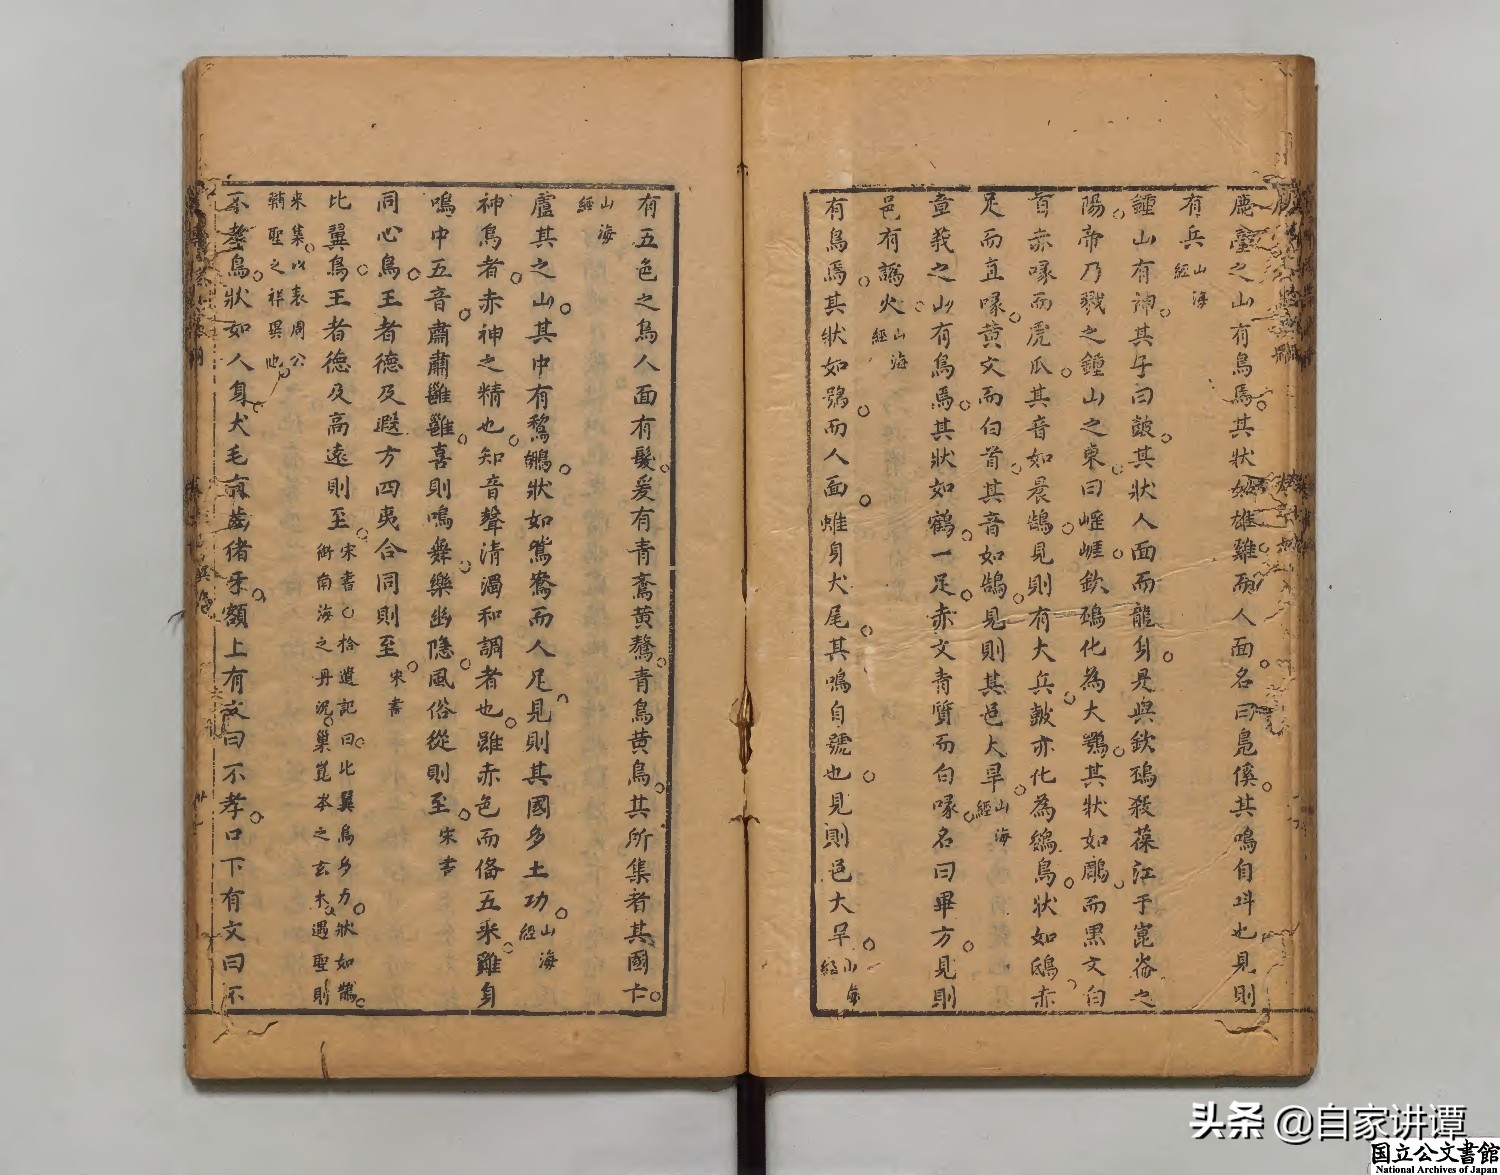 鹿臺之山有鳥焉其狀如雄雞而人面名曰鳧徯其鳴自叫也見則
有兵山海經
鍾山有神其子曰鼓其狀人面而龍身是與欽䲹殺葆江于崑崙之
陽帝乃戮之鍾山之東曰㟙崖欽䲹化為大鶚其狀如鵰而黑文白
首赤喙而虎爪其音如晨鵠見則有大兵鼓亦化為鵕鳥狀如鴟赤
足而直喙黃文而白首其音如鵠見則其邑大旱山海經
章莪之山有鳥焉其狀如鶴一足赤文青質而白喙名曰畢方見則
邑有譌火山海經
有鳥焉其狀如鴞而人面蜼身犬尾其鳴自號也見則邑大旱山海經
有五色之鳥人面有髮爰有青鴍黃鷔青鳥黃鳥其所集者其國亡
山海經
廬其之山其中有鵹鶘狀如鴛鴦而人足見則其國多土功山海經
神鳥者赤神之精也知音聲清濁和調者也雖赤色而備五采雞身
鳴中五音肅肅雝雝喜則鳴舞樂幽隱風俗從則至宋書
同心鳥王者德及遐方四夷合同則至宋書
比翼鳥王者德及高遠則至宋書○拾遺記曰比翼鳥多力狀如鵲銜南海之丹泥巢崑岑之玄木遇聖則
來集以表周公輔聖之祥異也
不孝鳥狀如人身犬毛有齒猪牙額上有文曰不孝口下有文曰不
头条 @自家讲谭
国立公文書館
National Archives of Japan